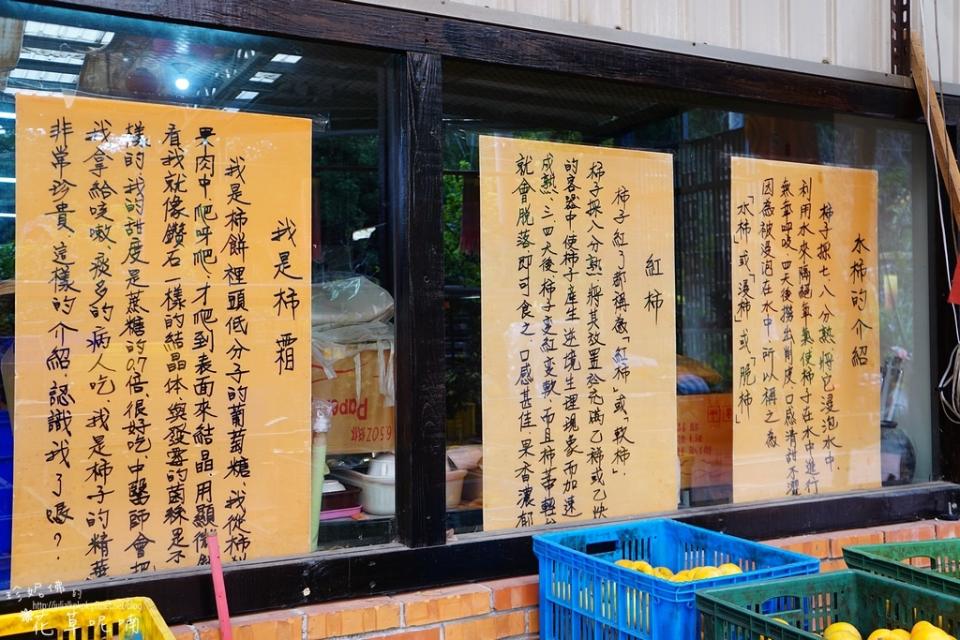 水柿的介紹
柿子採七、八分熟將它浸泡水中.
利用水來隔絕氧氣使柿子在水中進行
無氧呼吸.四天後撈出削皮.口感清甜不澀
因為被浸泡在水中.所以稱之為
「水柿」或「浸柿」或「脆柿」
紅柿
柿子紅了都稱為「紅柿」或「軟柿」.
柿子採八分熟.將其放置於充滿乙烯或乙炔
的容器中.使柿子產生逆境生理現象.而加速
成熟.三、四天後.柿子變紅變軟.而且柿蒂輕
就會脫落.即可食之.口感甚佳.果香濃郁
我是柿霜
我是柿餅裡頭低分子的葡萄糖.我從柿
果肉中.爬呀爬.才爬到表面來結晶.用顯微
看我就像鑽石一樣的結晶体.與發霉的菌絲是不
樣的.我的甜度是蔗糖的0.7倍.很好吃.中醫師會把
我拿給咳嗽.痰多的病人吃.我是柿子的精華
非常珍貴.這樣的介紹.認識我了嗎?
Paper
650Z
珍妮佛的
花草呢喃